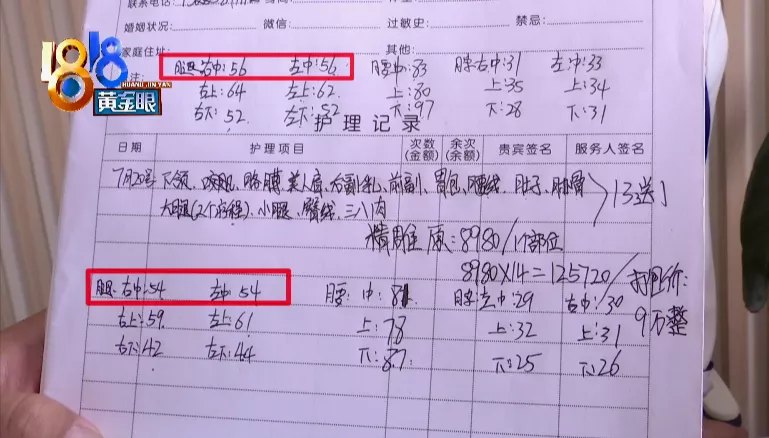 联系电话
婚姻状况: 微信: 过敏史: 禁忌:
家庭住址: 其他:
注: 腿: 右中:56 左中:56 腰中:83 胳右中:31 左中:33
右上:64 左上:62 上:80 上:35 上:34
右下:52 左下:52 下:97 下:28 下:31
护理记录
日期 护理项目 次数(金额) 余次(余额) 贵宾签名 服务人签名
7月20号 下颌、咬肌、胳膊、美人肩、右副乳、前副、胃包、腰线、肚子、
大腿(2个疗程)、小腿、臀线、三八肉 13送1
精雕 原:8980/1个部位
8980×14=125720/打包价:
9万整
腿:右中:54 左中:54 腰:中:81 胳左中:29 右中:30
右上:59 左上:61 上:78 上:32 上:31
右下:42 左下:44 下:87 下:25 下:26
1818
HUANG JIN YAN
黄金眼